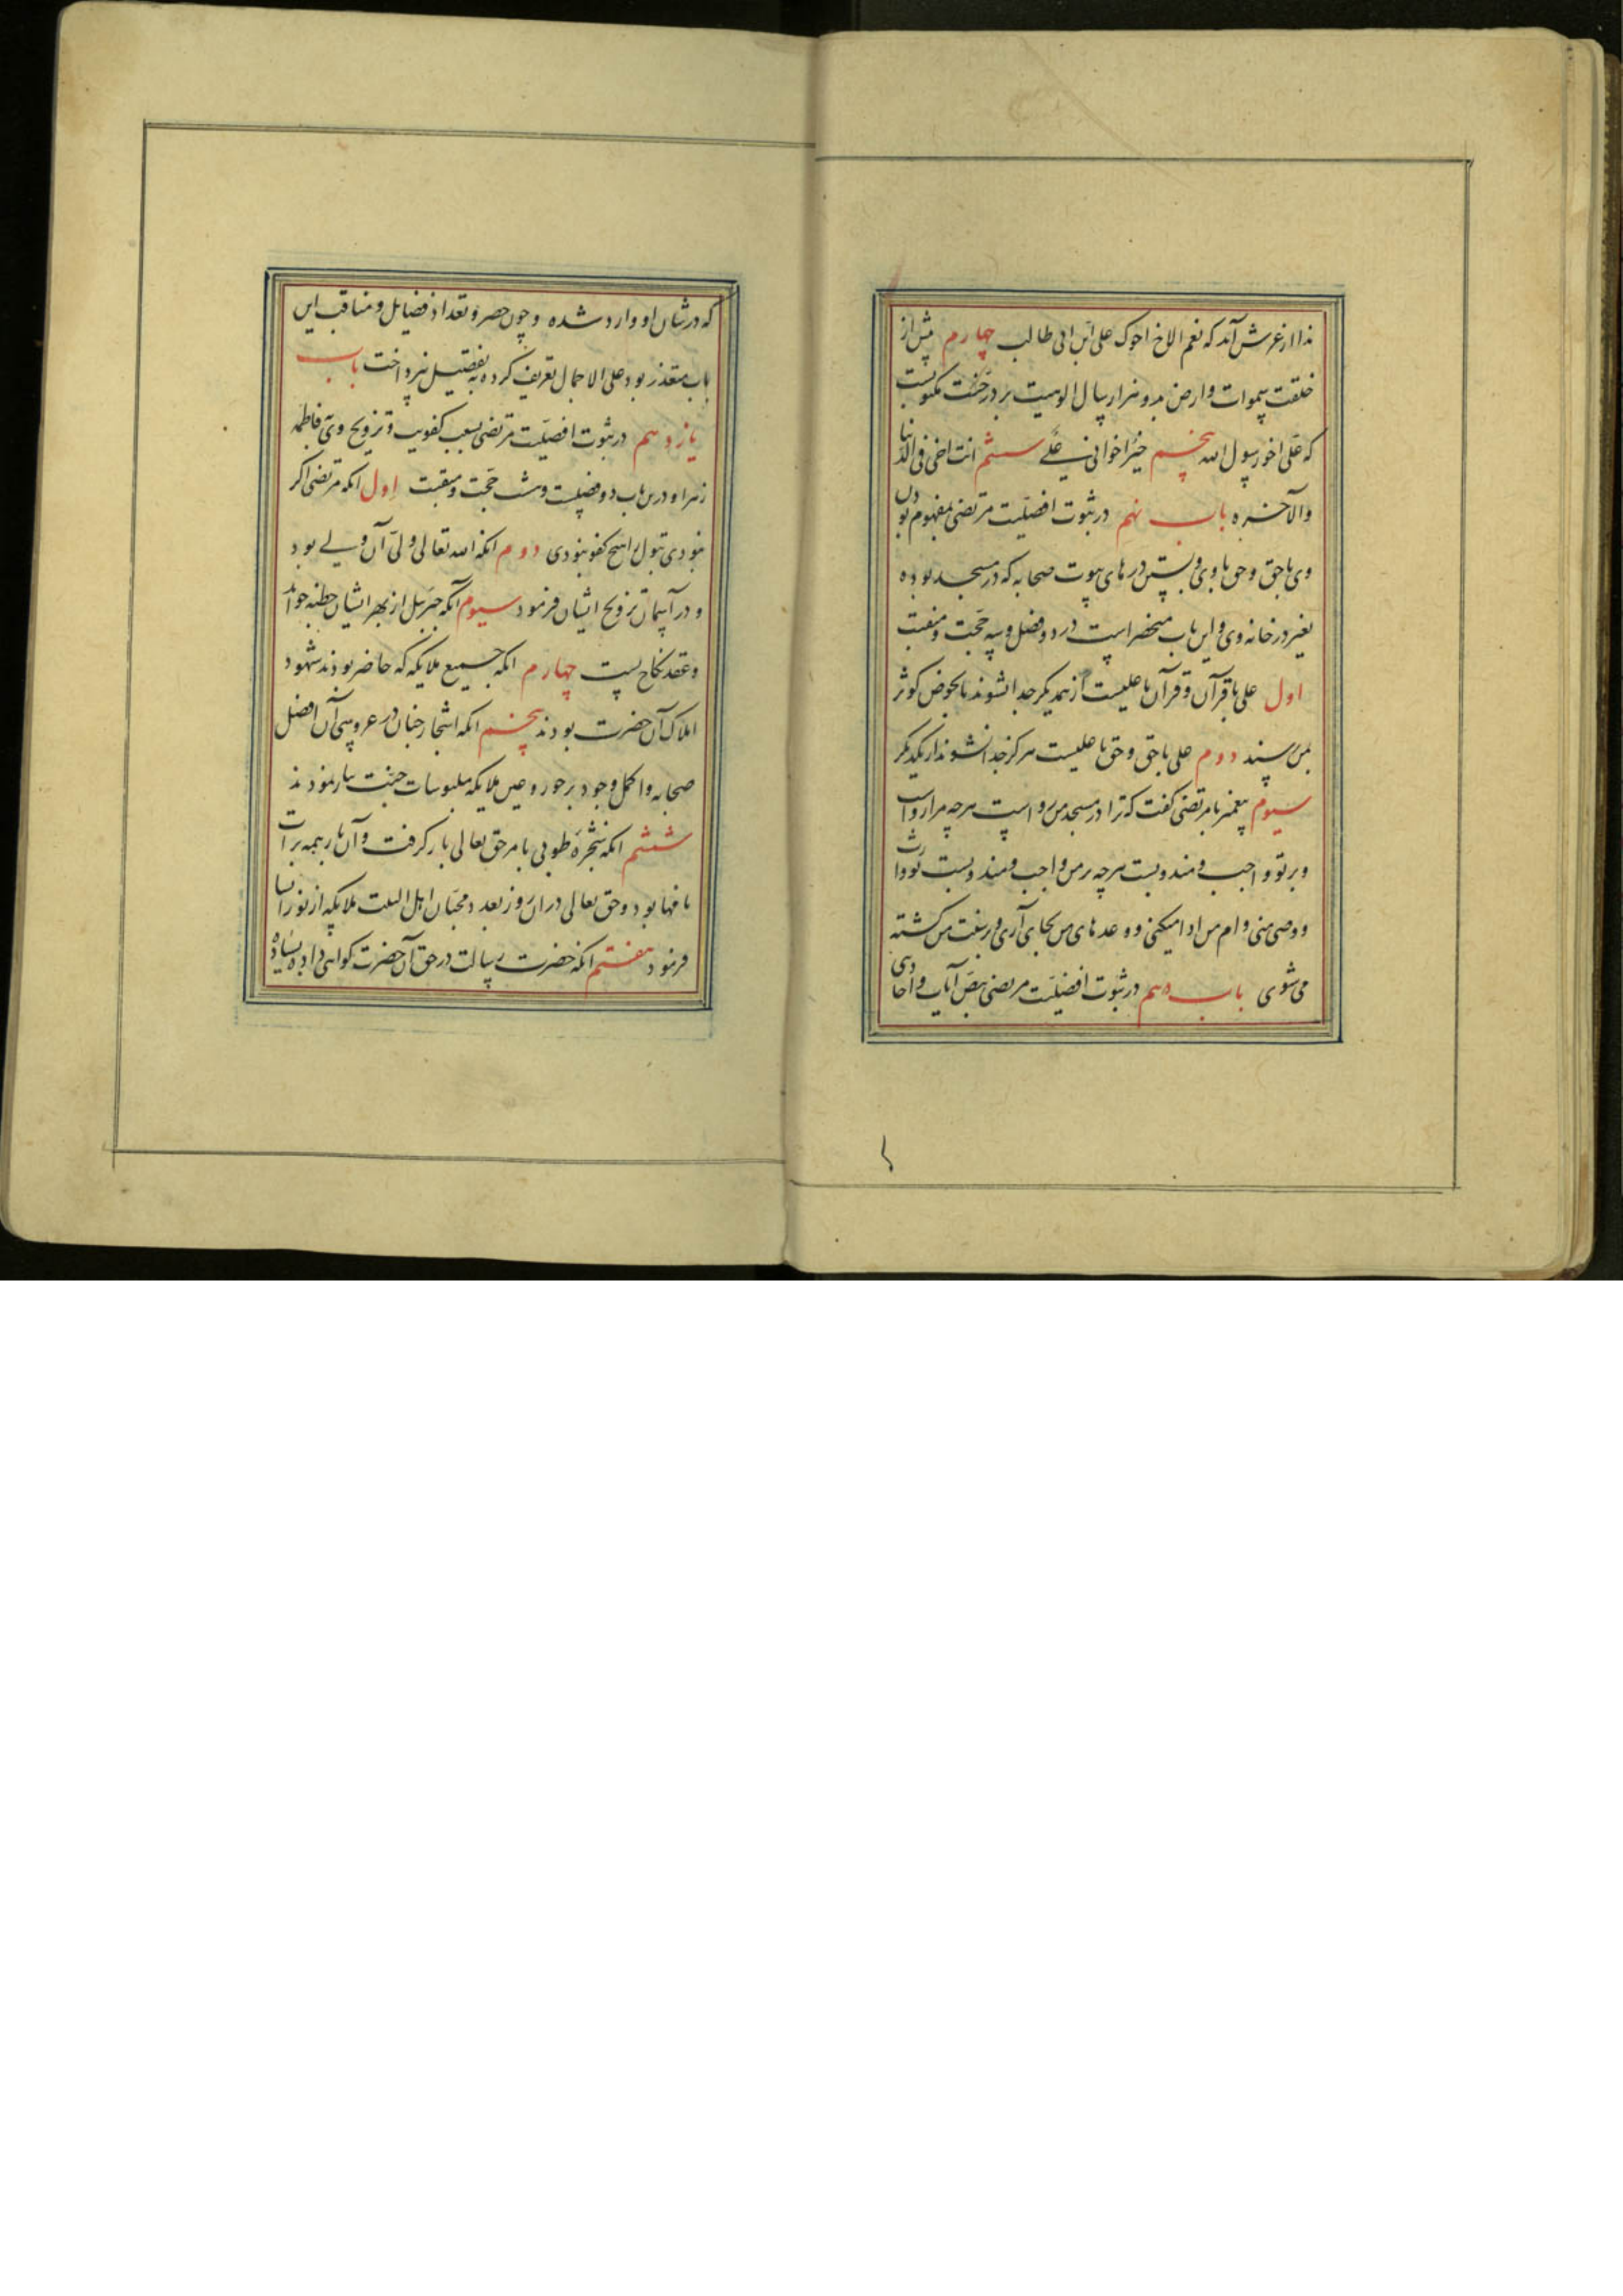 ندا از عرش آمد که نعم الاخ اخوک علی ابن ابی طالب چهارم پیش از
خلقت سموات و ارض بدو هزار سال الوهیت بر در جنت مکتوبست
که علی اخو رسول الله پنجم خیر اخوانی علی ششم انت اخی فی الدنیا
والآخره باب نهم در ثبوت افضلیت مرتضی بمفهوم بودن
وی با حق و حق با وی و بستن درهای بیوت صحابه که در مسجد بوده
بغیر در خانه وی و این باب منحصر است در دو فضل و سه حجت و منقبت
اول علی با قرآن و قرآن با علیست از همدیگر جدا نشوند تا بحوض کوثر
بمن رسند دوم علی با حق و حق با علیست هرگز جدا نشوند از یکدیگر
سیوم پیغمبر با مرتضی گفت که ترا در مسجد من رواست هرچه مرا رواست
و بر تو واجب و مندوبست هرچه بر من واجب و مندوبست تو وارث
و وصی منی و ام من ادا میکنی و وعدهای من بجای آری و بر سنت من کشته
می شوی باب دهم در ثبوت افضلیت مرتضی بنص آیات و احادیثی
که در شان او وارد شده و چون حصر و تعداد فضایل و مناقب این
باب متعذر بود علی الاجمال تعریف کرده به تفصیل نپرداخت باب
یازدهم در ثبوت افضلیت مرتضی بسبب کفویت و تزویج وی فاطمه
زهرا و درین باب دو فضیلت و شش حجت و منقبت اول انکه مرتضی اگر
نبودی بتول را هیچ کفو نبودی دوم انکه الله تعالی ولی آن ولی بود
و در آسمان تزویج ایشان فرمود سیوم آنکه جبرئیل از بهر ایشان خطبه خواند
و عقد نکاح بست چهارم انکه جمیع ملایکه که حاضر بودند شهود
املاک آن حضرت بودند پنجم انکه اشجار جنان در عروسی آن افضل
صحابه و اکمل وجود بر حور و عین و ملایکه ملبوسات جنت نثار نمودند
ششم انکه شجره طوبی بامر حق تعالی بار گرفت و آن بار همه برات
بافها بود و حق تعالی در ان روز بعدد محبان اهل البیت ملایکه از نور انشا
فرمود هفتم انکه حضرت رسالت در حق آن حضرت گواهی داده